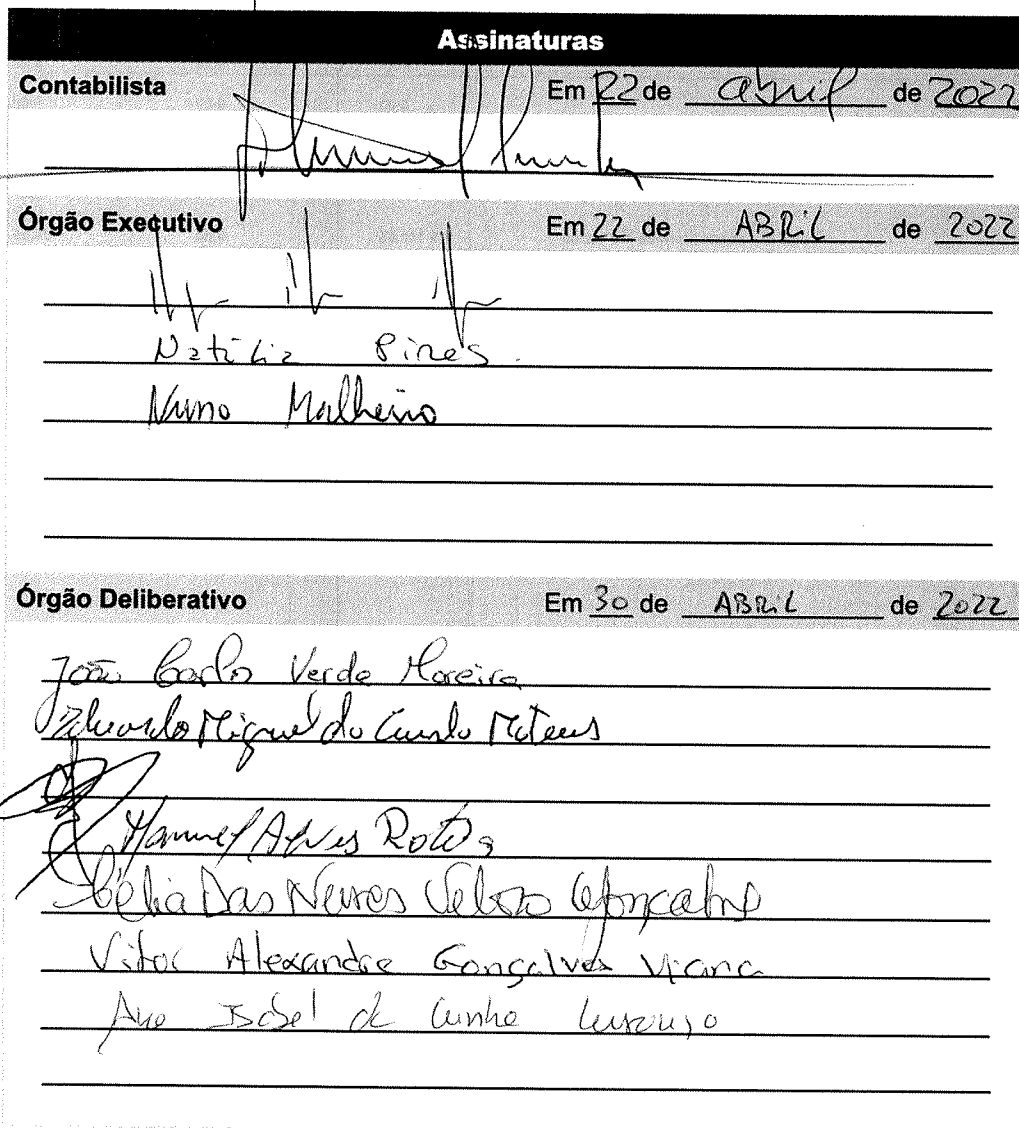 Assinaturas
Contabilista Em 22 de abril de 2022
Órgão Executivo Em 22 de ABRIL de 2022
Natália Pires.
Nuno Malheiro
Órgão Deliberativo Em 30 de ABRIL de 2022
João Carlos Verde Moreira
Eduardo Miguel da Cunha Mateus
Manuel Alves
Célia Das Neves Veloso Gonçalves
Vitor Alexandre Gonçalves Viana
Ana Isabel da Cunha